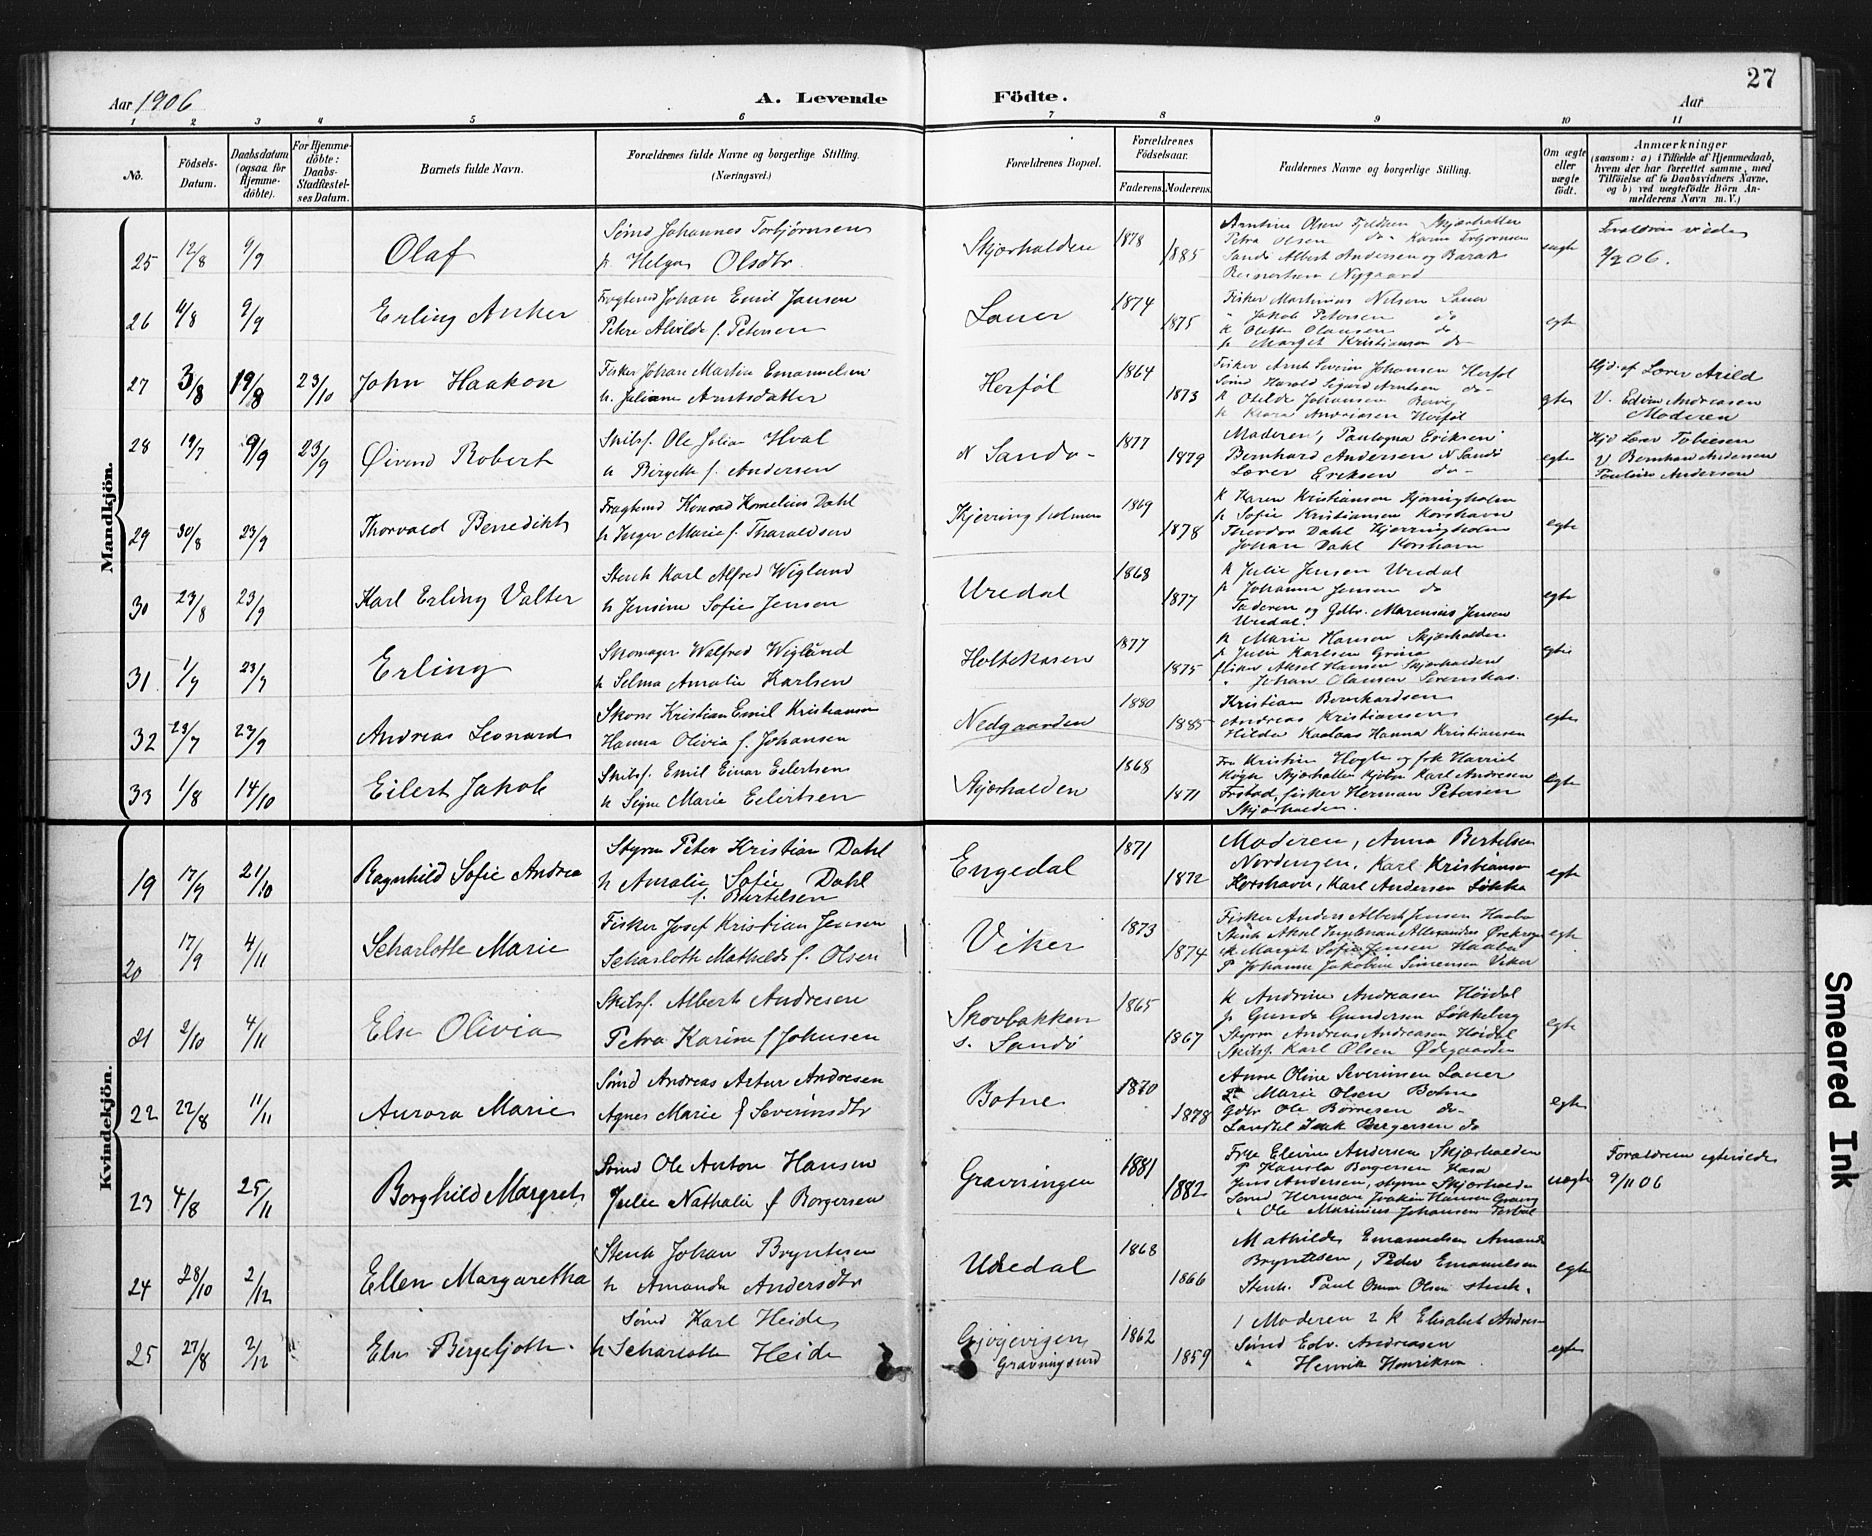 27
Aar 1906
A. Levende Födte.
Aar
1 2 3 4 5 6 7 8 9 10 11
No.
Födsels-Datum.
Daabsdatum (ogsaa for Hjemme-döbte).
For Hjemme-döbte: Daabs-Stadfæstel-ses Datum.
Barnets fulde Navn.
Forældrenes fulde Navne og borgerlige Stilling.
(Næringsvei.)
Forældrenes Bopæl.
Forældrenes Födselsaar.
Faderens. Moderens.
Faddernes Navne og borgerlige Stilling.
Om ægte eller uægte födt.
Anmærkninger
(saasom: a) i Tilfælde af Hjemmedaab,
hvem der har forrettet samme, med
Tilföielse af to Daabsvidners Navne,
og b) ved uægtefödte Börn An-
melderens Navn m. V.)
Mandkjön.
25 12/8 9/9 Olaf
Sømd Johannes Torbjørnsen
h. Helga Olsdtr.
Skjærhalden 1878 1885
Petra Olsen do
uægte
9/9 06.
26 11/8 9/9 Erling Anker
Fragtemd Johan Emil Jansen
Petre Alvilde f. Petersen
Lauer 1874 1875
Fisker Martinius Nilsen Lauer
" Jakob Petersen do
k Olette Olausen do
p Margit Kristiansen do
egte
27 3/8 19/8 23/10 John Haakon
Fisker Johan Martin Emanuelsen
h. Juliane Arntsdatter
Herføl 1864 1873
Fisker Arnt Severin Johansen Herføl
Sømd Harald Sigurd Arntsen do
k Otilde Johansen
p Klara Andreasen Herføl
egte
Hjd. af Lærer Arild
V. Edvin Andreasen
Moderen
28 19/7 9/9 23/9 Øivind Robert
Skibsf. Ole Julian Hval
h Birgette f. Andersen
N Sandø 1877 1879
Moderen, Eriksen
Bernhard Andersen N Sandø
Lærer Eriksen do
egte
Hjd Lærer Tobiesen
V Bernhard Andersen
Pauline Andersen
29 30/8 23/9 Thorvald Benedikt
Fragtemd Konrad Kornelius Dahl
h Inger Marie f. Tharaldsen
Kjerringholmen 1869 1878
k Karen Kristiansen Kjerringholm
p Sofie Kristiansen Korshavn
Theodor Dahl Kjerringholm
Johan Dahl Korshavn
egte
30 23/8 23/9 Karl Erling Valter
Stenh Karl Alfred Wiglund
h Jensine Sofie Jensen
Uredal 1868 1877
k Julie Jensen Uredal
p Johanne Jensen do
Faderen og Gdbr. Marensius Jensen
Uredal.
egte
31 1/9 23/9 Erling
Skomager Walfred Wiglund
h Selma Amalie Karlsen
Holtekasen 1877 1875
k Marie Hansen Skjærhalden
p Julie Karlsen
fisker Aksel Hansen Skjærhalden
" Johan Olausen
egte
32 23/7 23/9 Andreas Leonard
Skom Kristian Emil Kristiansen
Hanna Olivia f. Johansen
Nedgaarden 1880 1885
Kristian Bernhardsen
Andreas Kristiansen
Hilda Hanna Kristiansen
egte
33 1/8 14/10 Eilert Jakob
Skibsf. Emil Einar Eilertsen
h Signe Marie Eilertsen
Skjærhalden 1868 1871
Fru Kristine Høgh og frk Harriet
Høgh Skjærhalden Kjøbm Karl Andresen
fisker Herman Petersen
Skjærhalden.
egte
Kvindekjön.
19 17/9 21/10 Ragnhild Sofie Andrea
Styrm Peter Kristian Dahl
h Amalie Sofie Dahl
f. Bertelsen
Engedal 1871 1872
Moderen, Anna Bertelsen
Nordengen, Karl Kristiansen
Korshavn, Karl Andersen Løkka
egte
20 17/9 4/11 Scharlotte Marie
Fisker Josef Kristian Jensen
Scharlotte Mathilde f. Olsen
Viker 1873 1874
Fisker Anders Albert Jensen Haabø
k Margit Sofie Jensen Haabø
P Johanne Jakobine Simensen Viker
egte
21 2/10 4/11 Else Olivia
Skibsf. Albert Andresen
Petra Karine f Johnsen
Skovbakken
S. Sandø
1865 1867
k Andrine Andreasen Høidal
p Gunda Gundersen Løkkeberg
Styrm Andreas Andreasen Høidal
Skibsf. Karl Olsen Ødegaarden
egte
22 22/8 11/11 Aurora Marie
Sømd Andreas Artur Andresen
Agnes Marie f Severinsdtr
Botne 1870 1878
Anne Oline Severinsen Lauer
P. Marie Olsen Botne
Gdbr Ole Børresen do
Isak Bergersen do
egte
23 4/8 25/11 Borghild Margret
Sømd Ole Anton Hansen
Julie Nathalie f Borgersen
Gravningen 1881 1882
Frue Elvine Andersen Skjærhalden
Jens Andersen, styrm Skjærhalden
Sømd Herman Joakim Hansen
" Ole Marinius Johansen
uægte
Forældrene egteviede
9/11 06
24 28/10 2/12 Ellen Margaretha
Stenh Johan Bryntesen
h Amanda Andersdtr
Uredal 1868 1866
Mathilde Emanuelsen Amanda
Bryntesen, Peder Emanuelsen
Stenh. Paul Olsen stenh.
egte
25 27/8 2/12 Else Bergeljoth
Sømd Karl Heide
h Scharlotte Heide
Gjøgevigen
Gravningsund
1862 1859
1 Moderen 2 k Elisabet Andresen
Sømd Edv. Andreasen
" Henrik Henriksen
egte
Smeared Ink